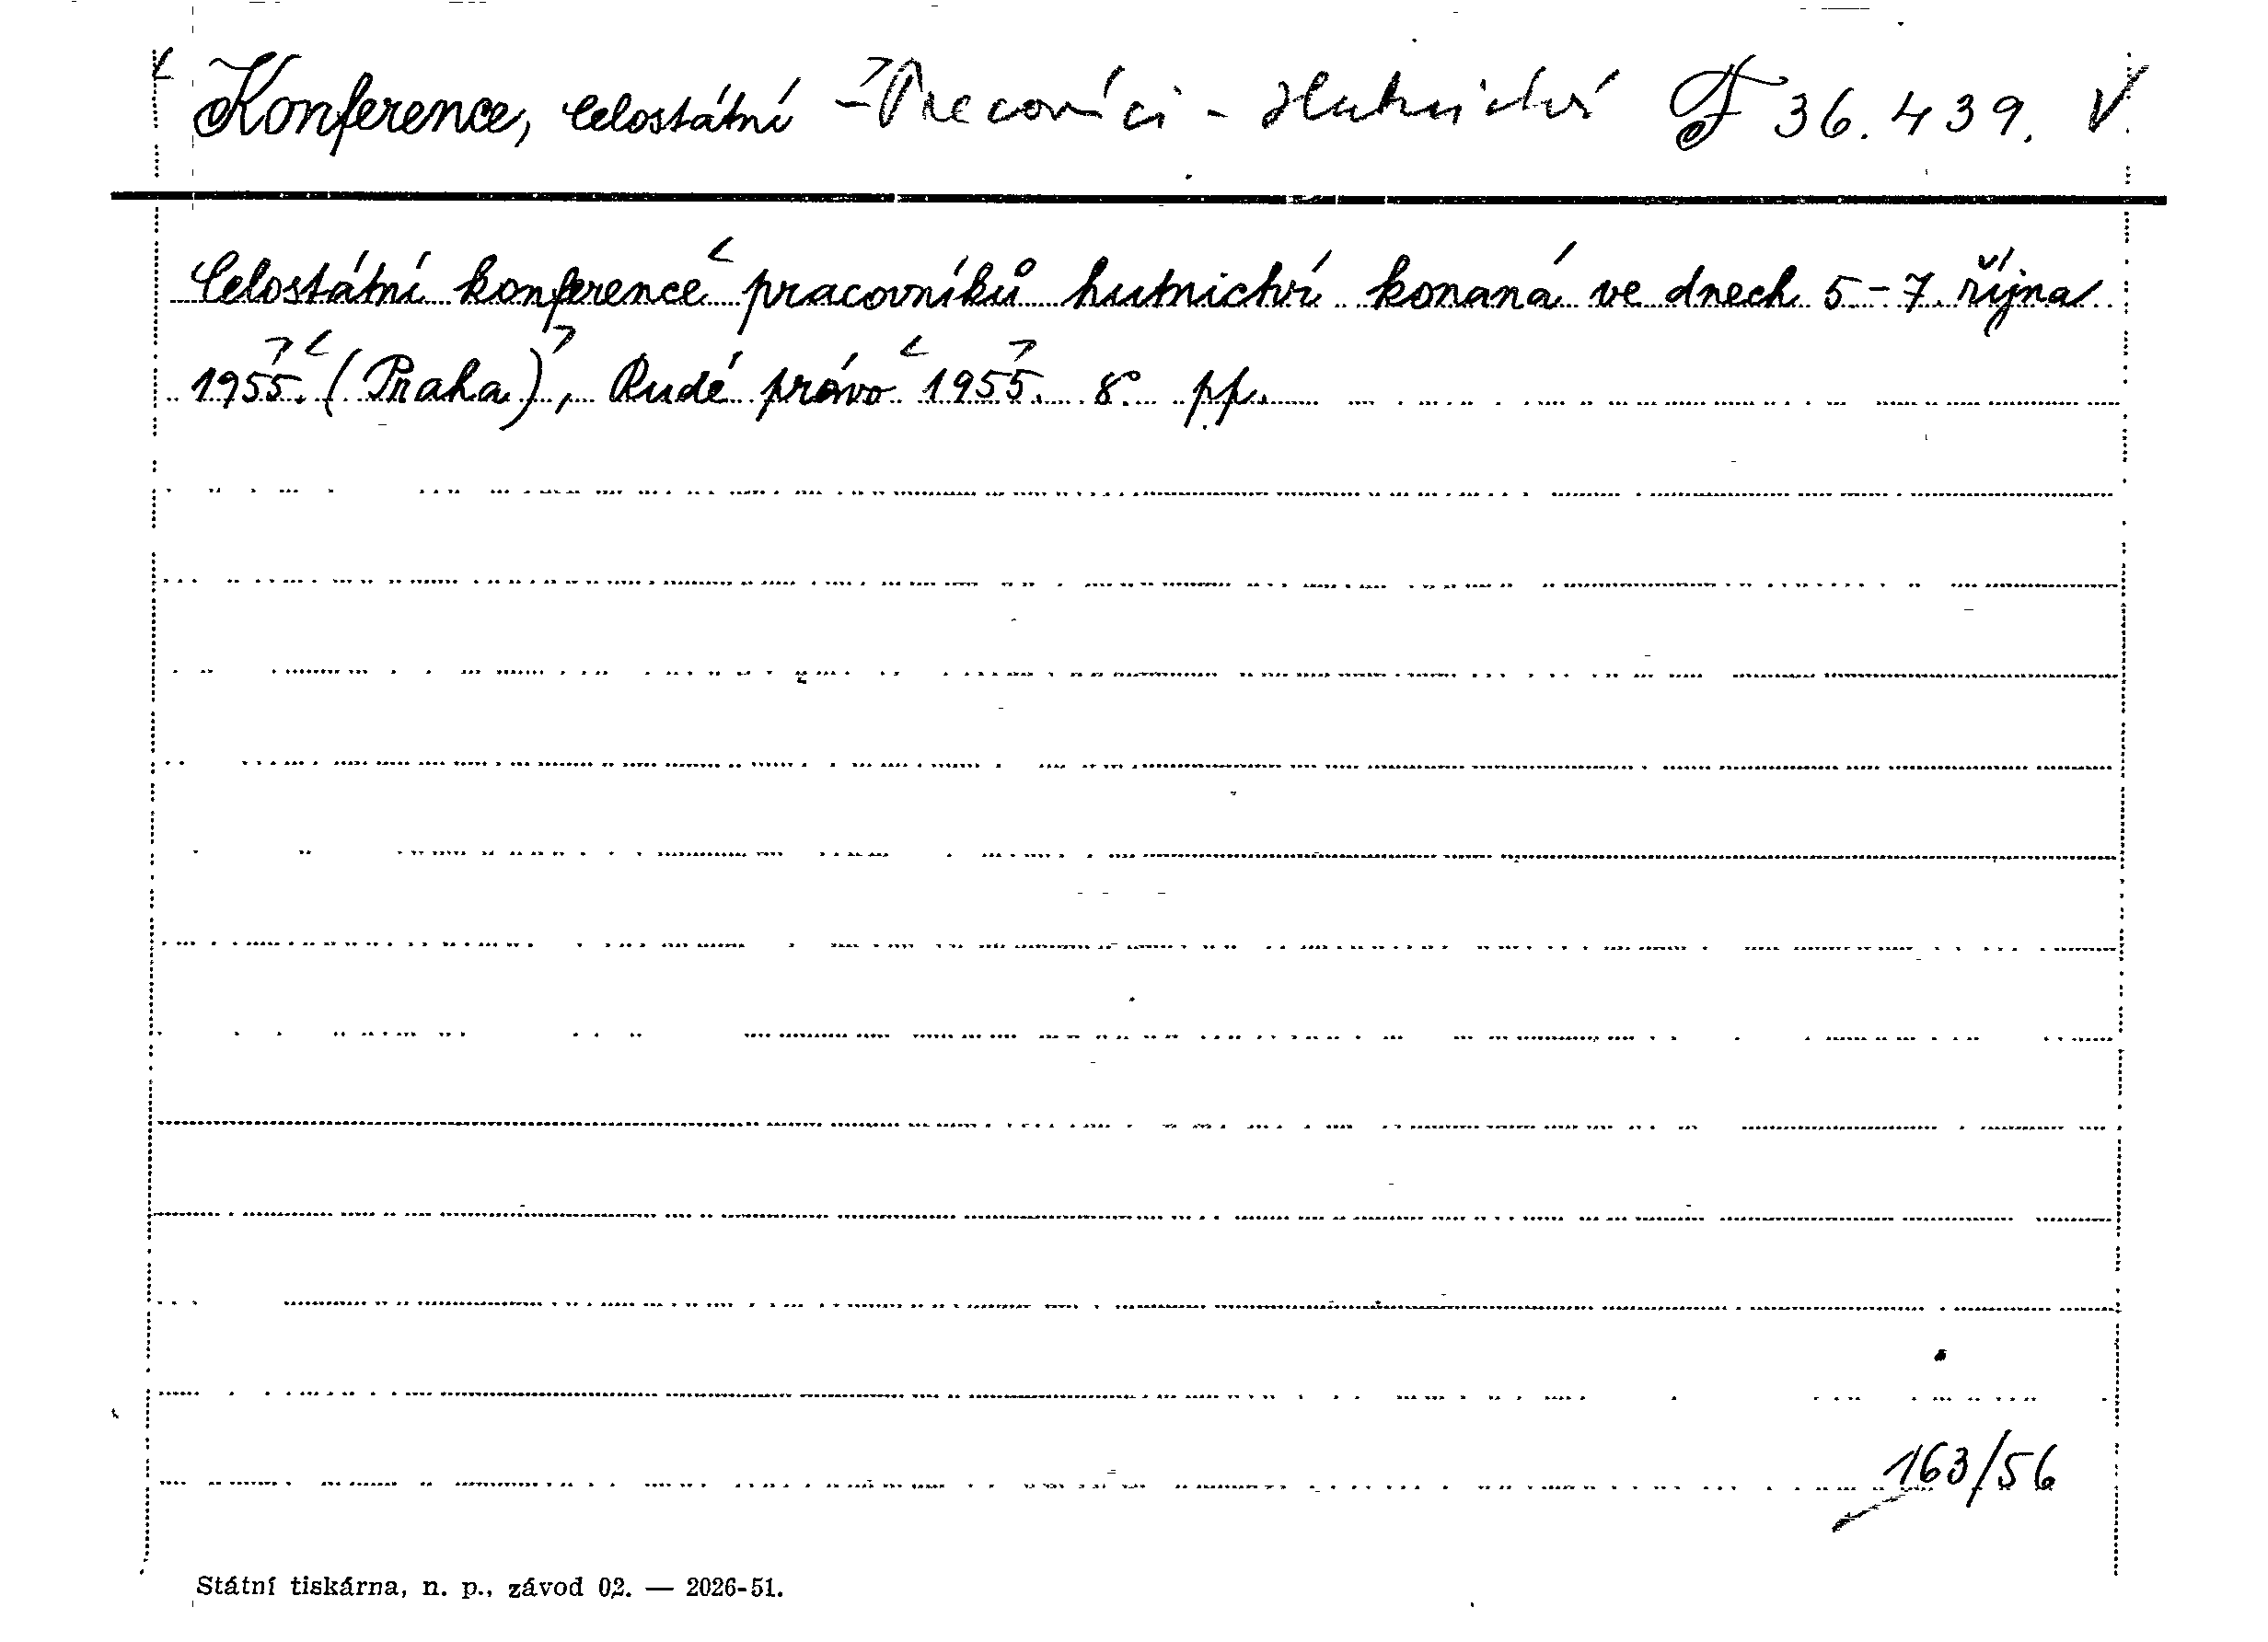 Konference, celostátní - Pracovníci - Hutnictví F 36.439. V
Celostátní konference pracovníků hutnictví konaná ve dnech 5-7. října
1955. (Praha), Rudé právo 1955. 8° pp.
163/56
Státní tiskárna, n. p., závod 02. — 2026-51.